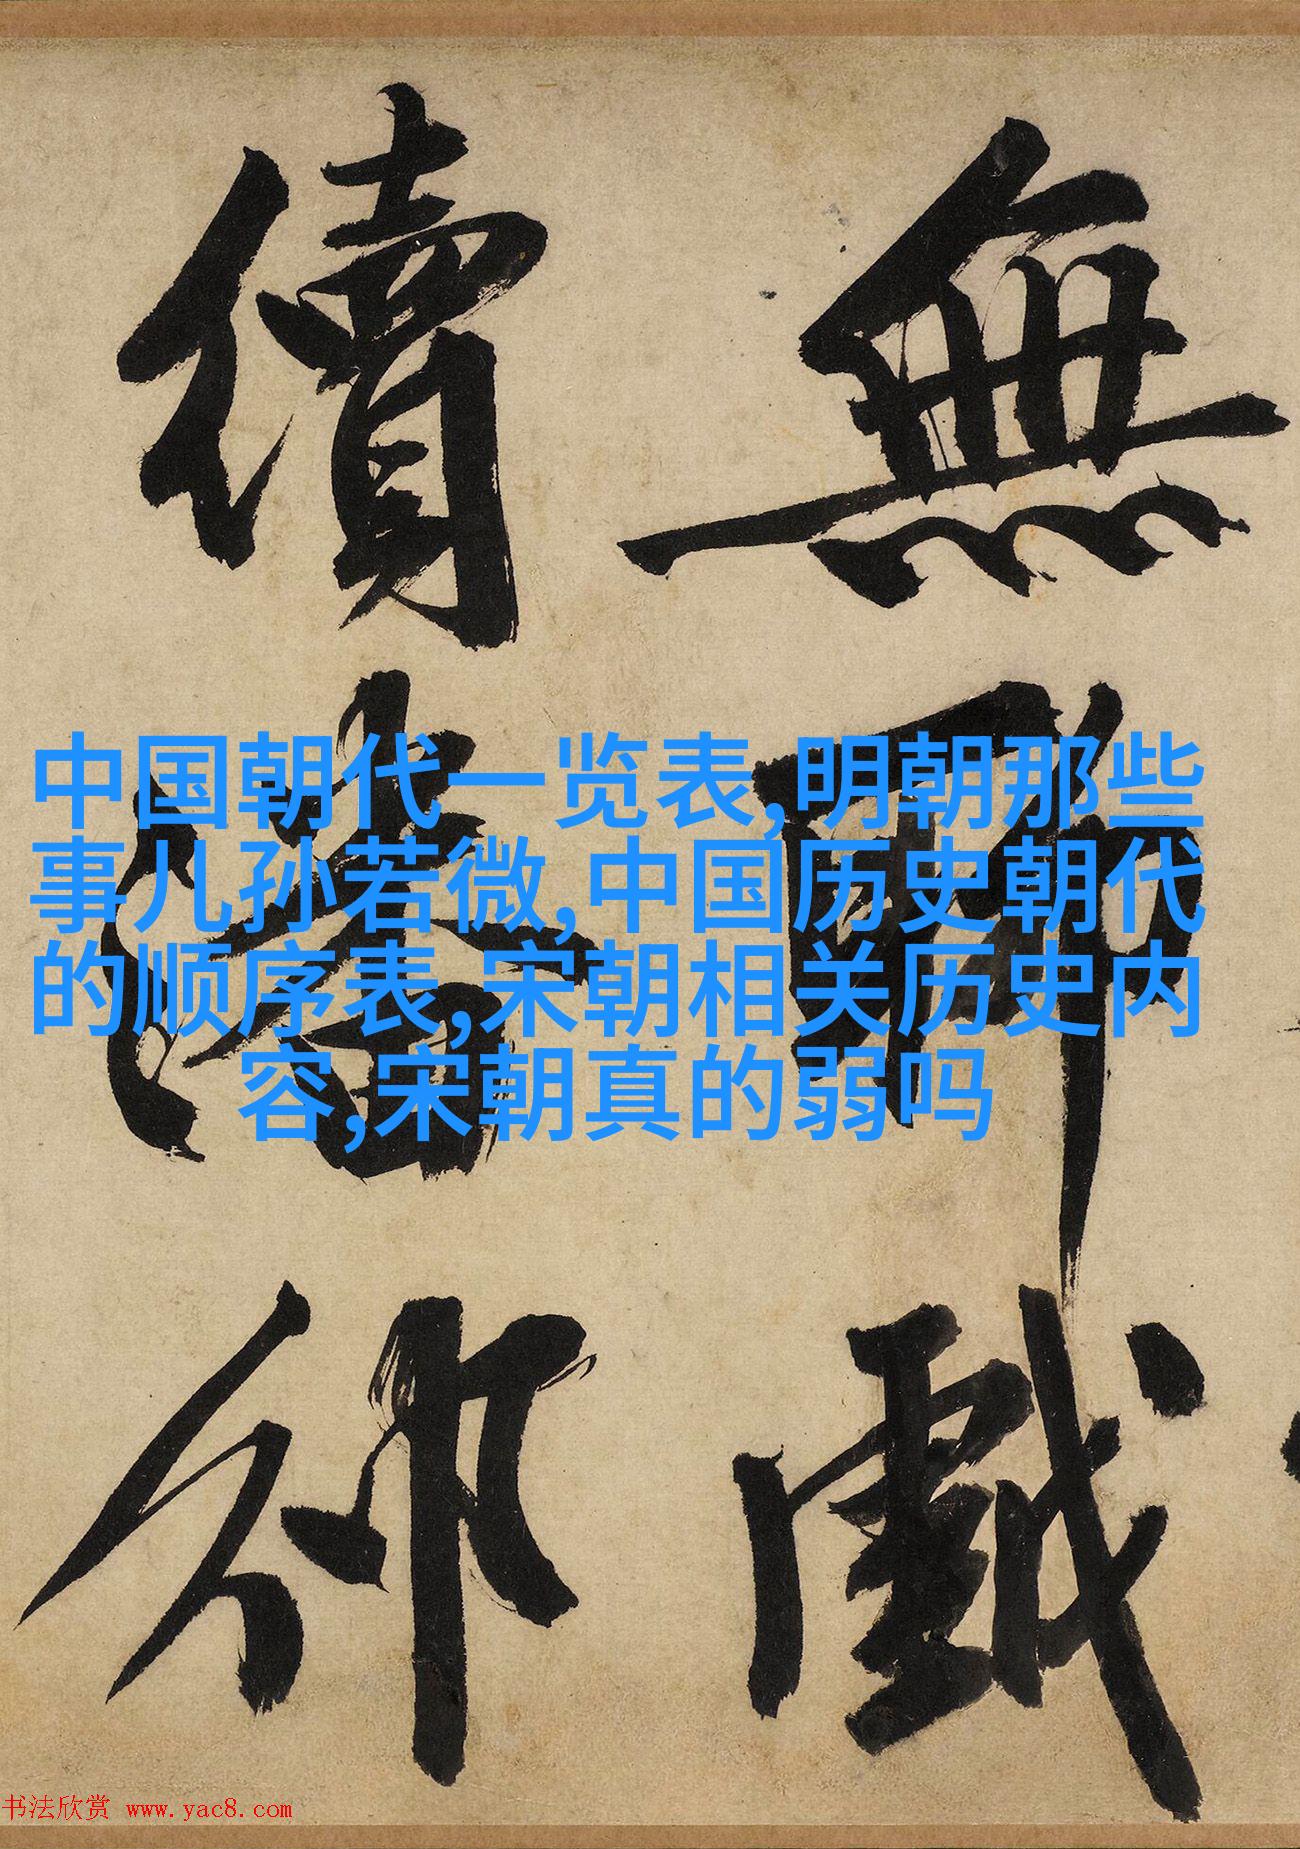 無聊戲
續潘邠
中国朝代一览表,明朝那些
事儿孙若微,中国历史朝代
的顺序表,宋朝相关历史内
容,宋朝真的弱吗
书法欣赏 www.yac8.com